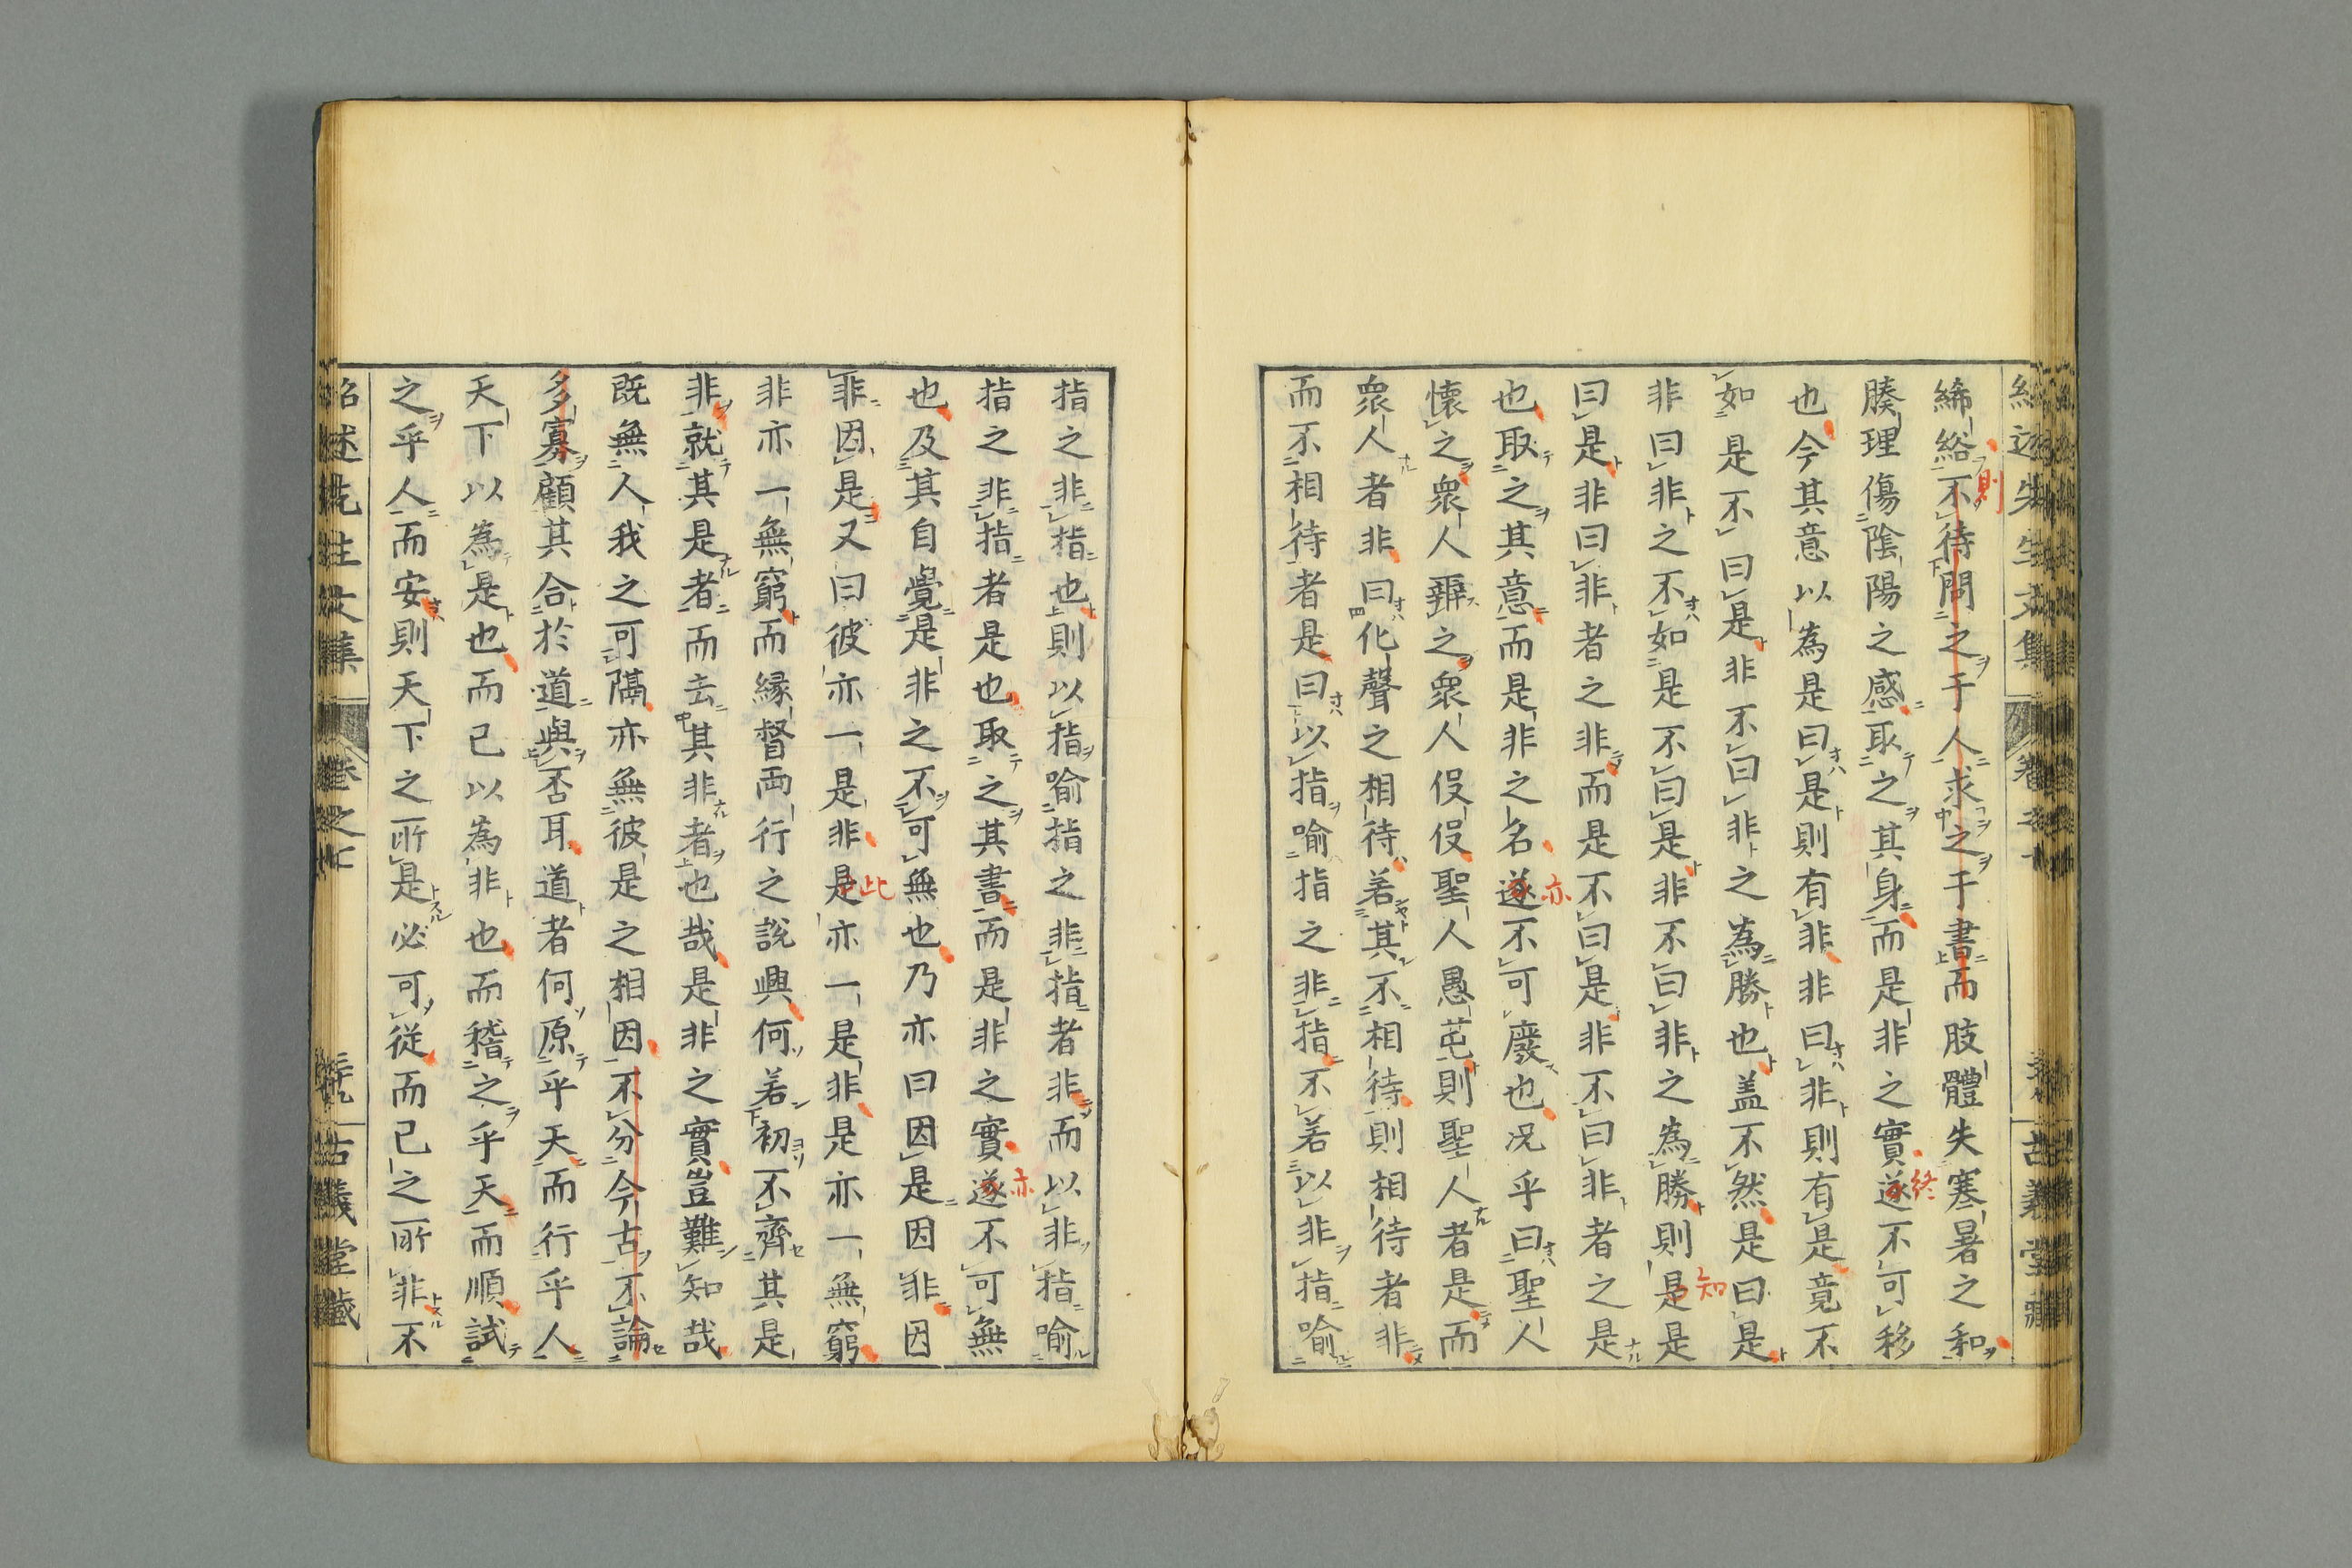 絺綌不待問之于人求之于書而肢體失寒暑之和
則
腠理傷陰陽之感取之其身而是非之實遂不可移
終
也今其意以為是曰是則有非非曰非則有是竟不
如是不曰是非不曰非之為勝也盖不然是曰是
非曰非之不如是不曰是非不曰非之為勝則是是
知
曰是非曰非者之非而是不曰是非不曰非者之是
也取之其意而是非之名遂不可廢也况乎曰聖人
亦
懷之衆人辨之衆人役役聖人愚芚則聖人者是而
衆人者非曰化聲之相待若其不相待則相待者非
而不相待者是曰以指喻指之非指不若以非指喻
指之非指也則以指喻指之非指者非而以非指喻
指之非指者是也取之其書而是非之實遂不可無
亦
也及其自覺是非之不可無也乃亦曰因是因非因
非因是又曰彼亦一是非是亦一是非是亦一無窮
此
非亦一無窮而縁督兩行之說興何若初不齊其是
非就其是者而去其非者也哉是非之實豈難知哉
既無人我之可隔亦無彼是之相因不分今古不論
多寡顧其合於道與否耳道者何原乎天而行乎人
天下以為是也而已以為非也而稽之乎天而順試
之乎人而安則天下之所是必可從而已之所非不
紹述先生文集
卷之七
古義堂藏